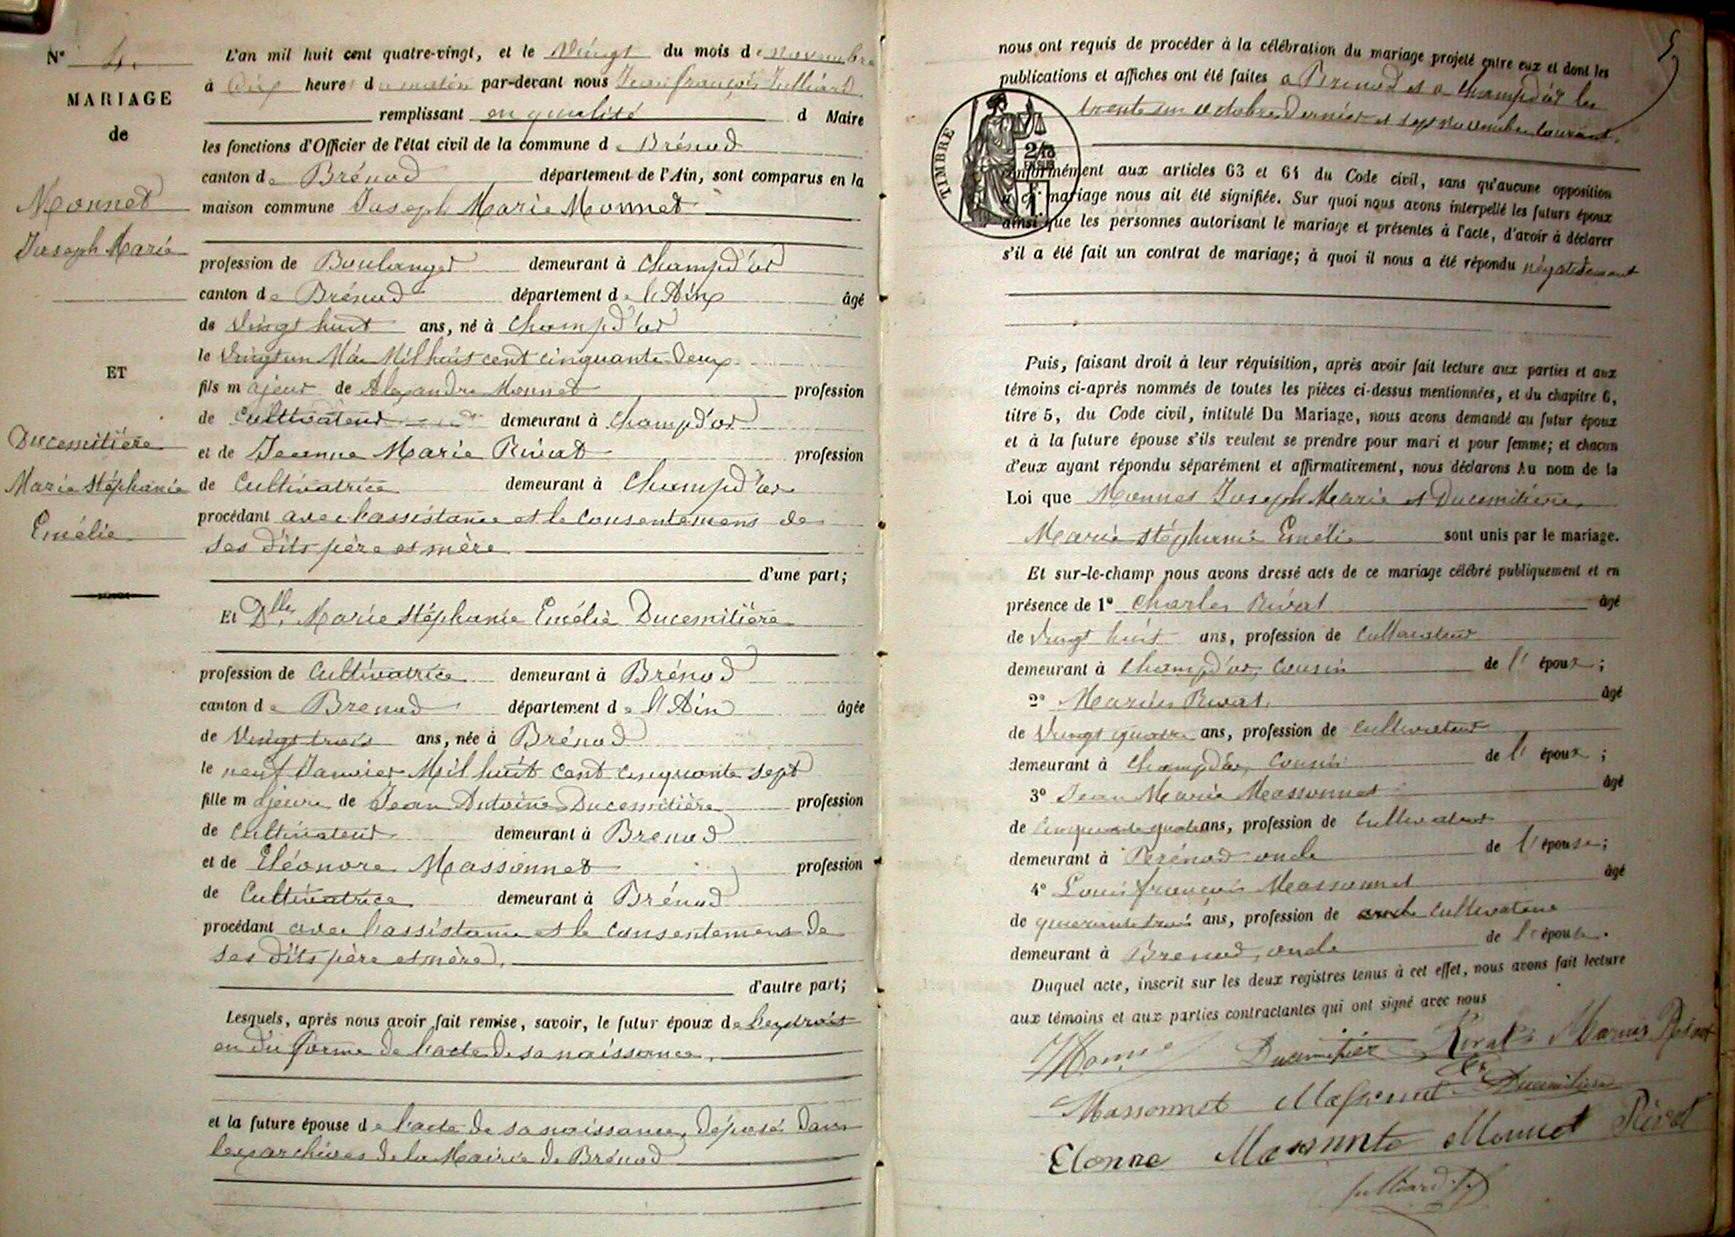 N° 4.
MARIAGE
de
Monnet
Joseph Marie
ET
Ducemitière
Marie Stéphanie
Emélie
L'an mil huit cent quatre-vingt, et le vingt du mois de novembre
à dix heures du matin par-devant nous Jean françois Julliard
remplissant en qualité d Maire
les fonctions d'Officier de l'état civil de la commune de Brénod
canton de Brénod département de l'Ain, sont comparus en la
maison commune Joseph Marie Monnet
profession de Boulanger demeurant à Champd'or
canton de Brénod département de l'Ain âgé
de vingt huit ans, né à Champd'or
le vingt un Mai Mil huit cent cinquante deux
fils majeur de Alexandre Monnet profession
de Cultivateur demeurant à Champd'or
et de Jeanne Marie Rivat profession
de Cultivatrice demeurant à Champd'or
procédant avec l'assistance et le consentement de
ses dits père et mère
d'une part;
Et Dlle Marie Stéphanie Emélie Ducemitière
profession de Cultivatrice demeurant à Brénod
canton de Brenod département de l'Ain âgée
de vingt trois ans, née à Brénod
le neuf Janvier Mil huit cent cinquante sept
fille majeure de Jean Antoine Ducemitière profession
de Cultivateur demeurant à Brenod
et de Eléonore Massonnet profession
de Cultivatrice demeurant à Brénod
procédant avec l'assistance et le consentement de
ses dits père et mère,
d'autre part;
Lesquels, après nous avoir fait remise, savoir, le futur époux de l'extrait
en due forme de l'acte de sa naissance,
et la future épouse de l'acte de sa naissance, déposé dans
les archives de la Mairie de Brénod
5
nous ont requis de procéder à la célébration du mariage projeté entre eux et dont les
publications et affiches ont été faites à Brenod et à Champd'or les
trente un octobre dernier et sept novembre courant.
TIMBRE
conformément aux articles 63 et 64 du Code civil, sans qu'aucune opposition
mariage nous ait été signifiée. Sur quoi nous avons interpellé les futurs époux
ainsi que les personnes autorisant le mariage et présentes à l'acte, d'avoir à déclarer
s'il a été fait un contrat de mariage; à quoi il nous a été répondu négativement
Puis, faisant droit à leur réquisition, après avoir fait lecture aux parties et aux
témoins ci-après nommés de toutes les pièces ci-dessus mentionnées, et du chapitre 6,
titre 5, du Code civil, intitulé Du Mariage, nous avons demandé au futur époux
et à la future épouse s'ils veulent se prendre pour mari et pour femme; et chacun
d'eux ayant répondu séparément et affirmativement, nous déclarons Au nom de la
Loi que Monnet Joseph Marie et Ducemitière
Marie Stéphanie Emélie sont unis par le mariage.
Et sur-le-champ nous avons dressé acte de ce mariage célébré publiquement et en
présence de 1° Charles Rivat âgé
de vingt huit ans, profession de cultivateur
demeurant à Champd'or, cousin de l'époux;
2° Marius Rivat, âgé
de vingt quatre ans, profession de cultivateur
demeurant à Champd'or, cousin de l'époux;
3° Jean Marie Massonnet âgé
de cinquante quatre ans, profession de cultivateur
demeurant à Brénod oncle de l'épouse;
4° Louis françois Massonnet âgé
de quarante trois ans, profession de cultivateur
demeurant à Brenod, oncle de l'épouse.
Duquel acte, inscrit sur les deux registres tenus à cet effet, nous avons fait lecture
aux témoins et aux parties contractantes qui ont signé avec nous
Ducemitier Rivat Marius Rivat
Massonnet Massonnet Ducemitière
Monnet Rivat
Julliard